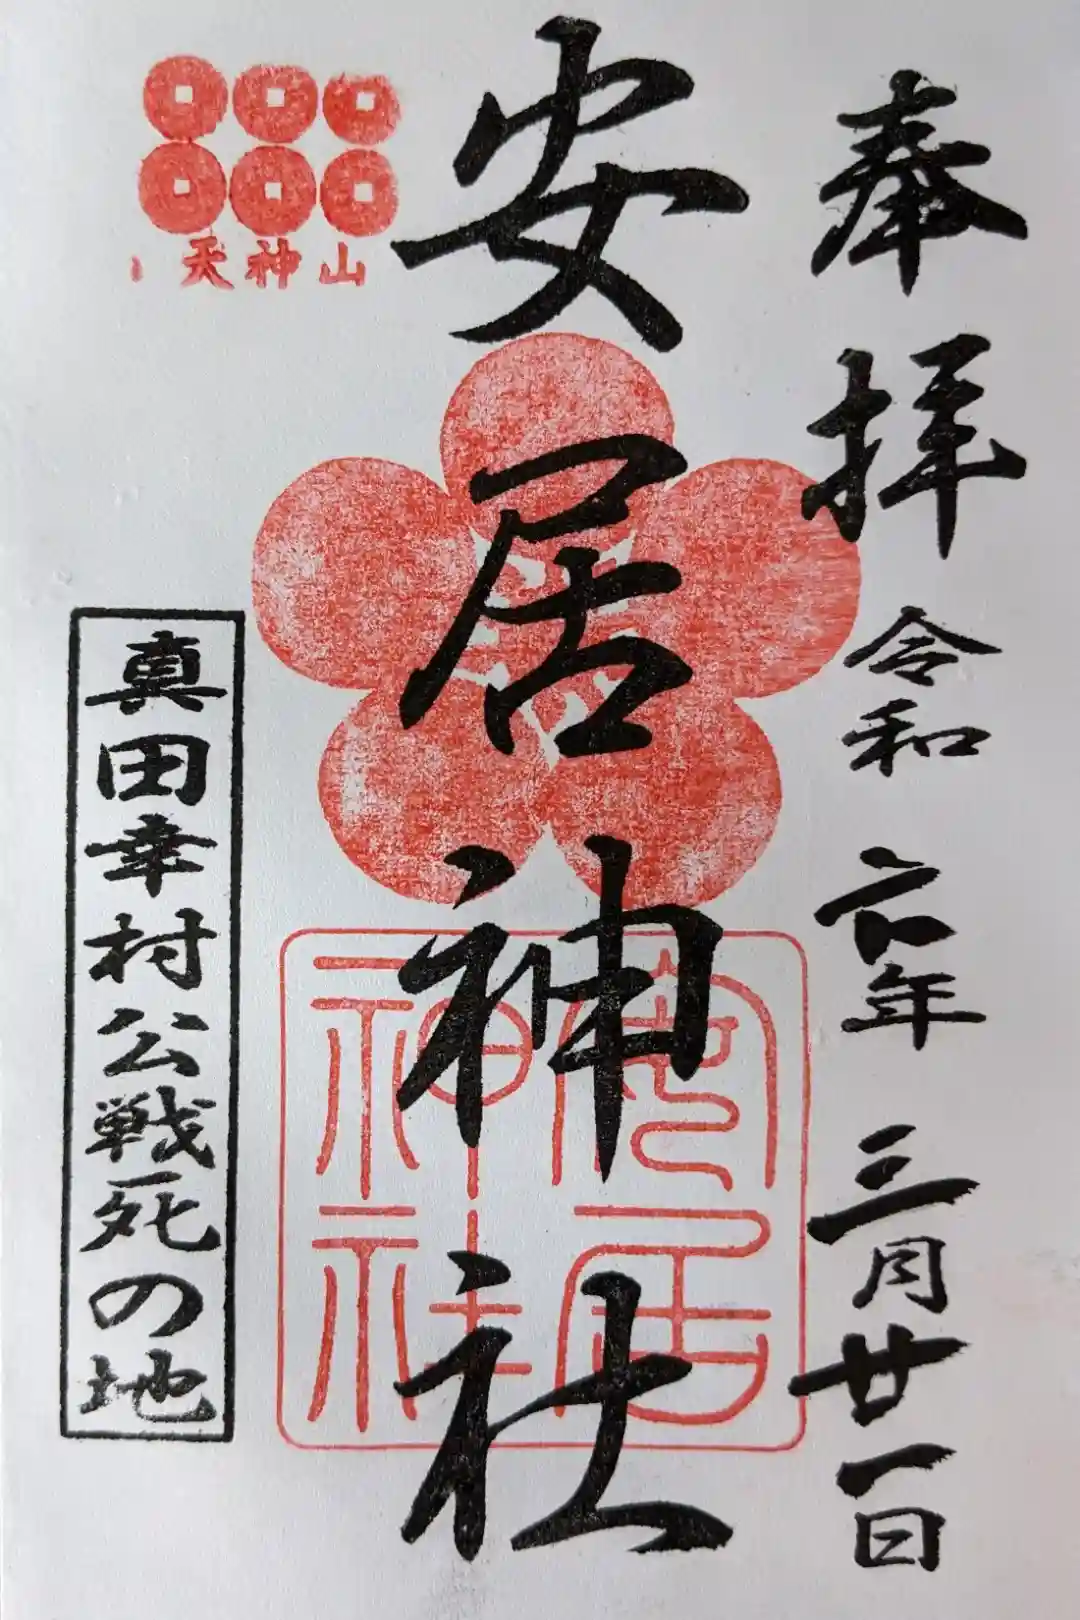 奉拝 令和六年 三月廿一日
安居神社
天神山
安居
神社
真田幸村公戦死の地